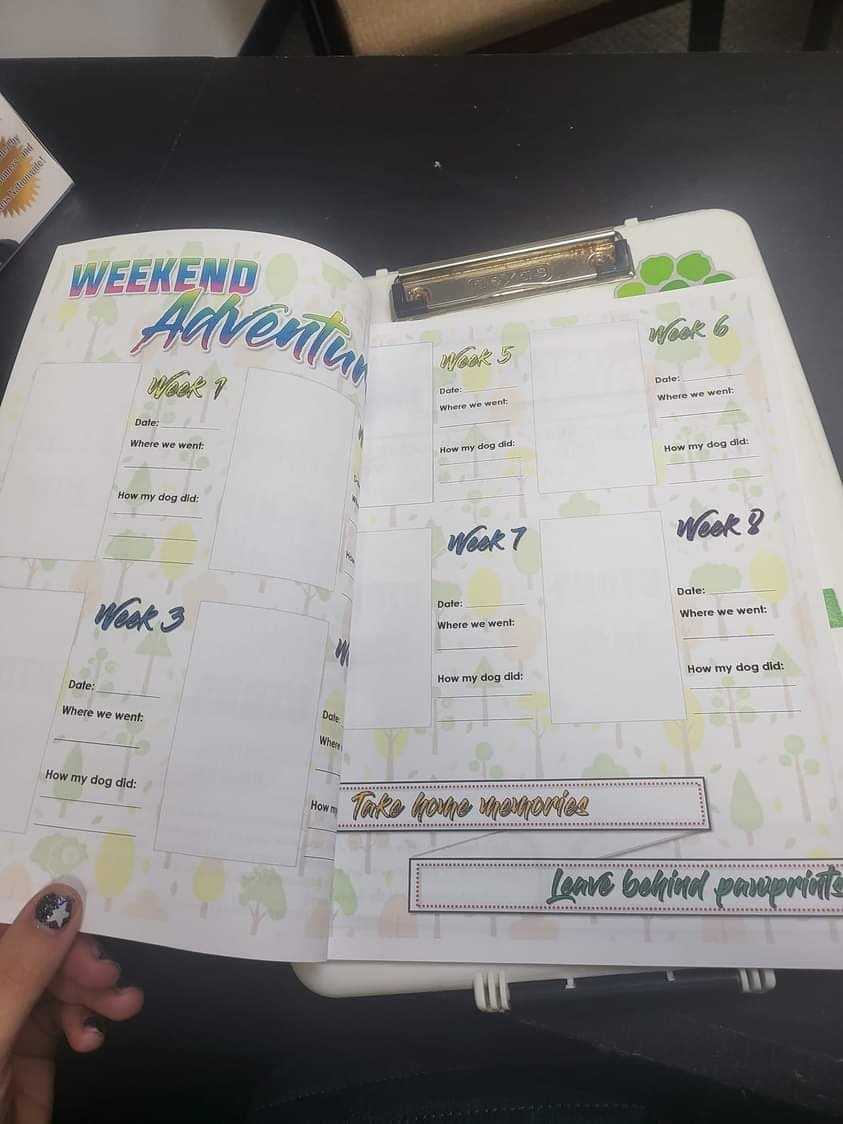 WEEKEND
Adventur
Week 1
Date:
Where we went:
How my dog did:
Week 3
Date:
Where we went:
How my dog did:
W
Date:
Where
How m
Week 5
Date:
Where we went:
How my dog did:
Week 6
Date:
Where we went:
How my dog did:
Week 7
Date:
Where we went:
How my dog did:
Week 8
Date:
Where we went:
How my dog did:
Take home memories
Leave behind pawprints
and
Nationwide!